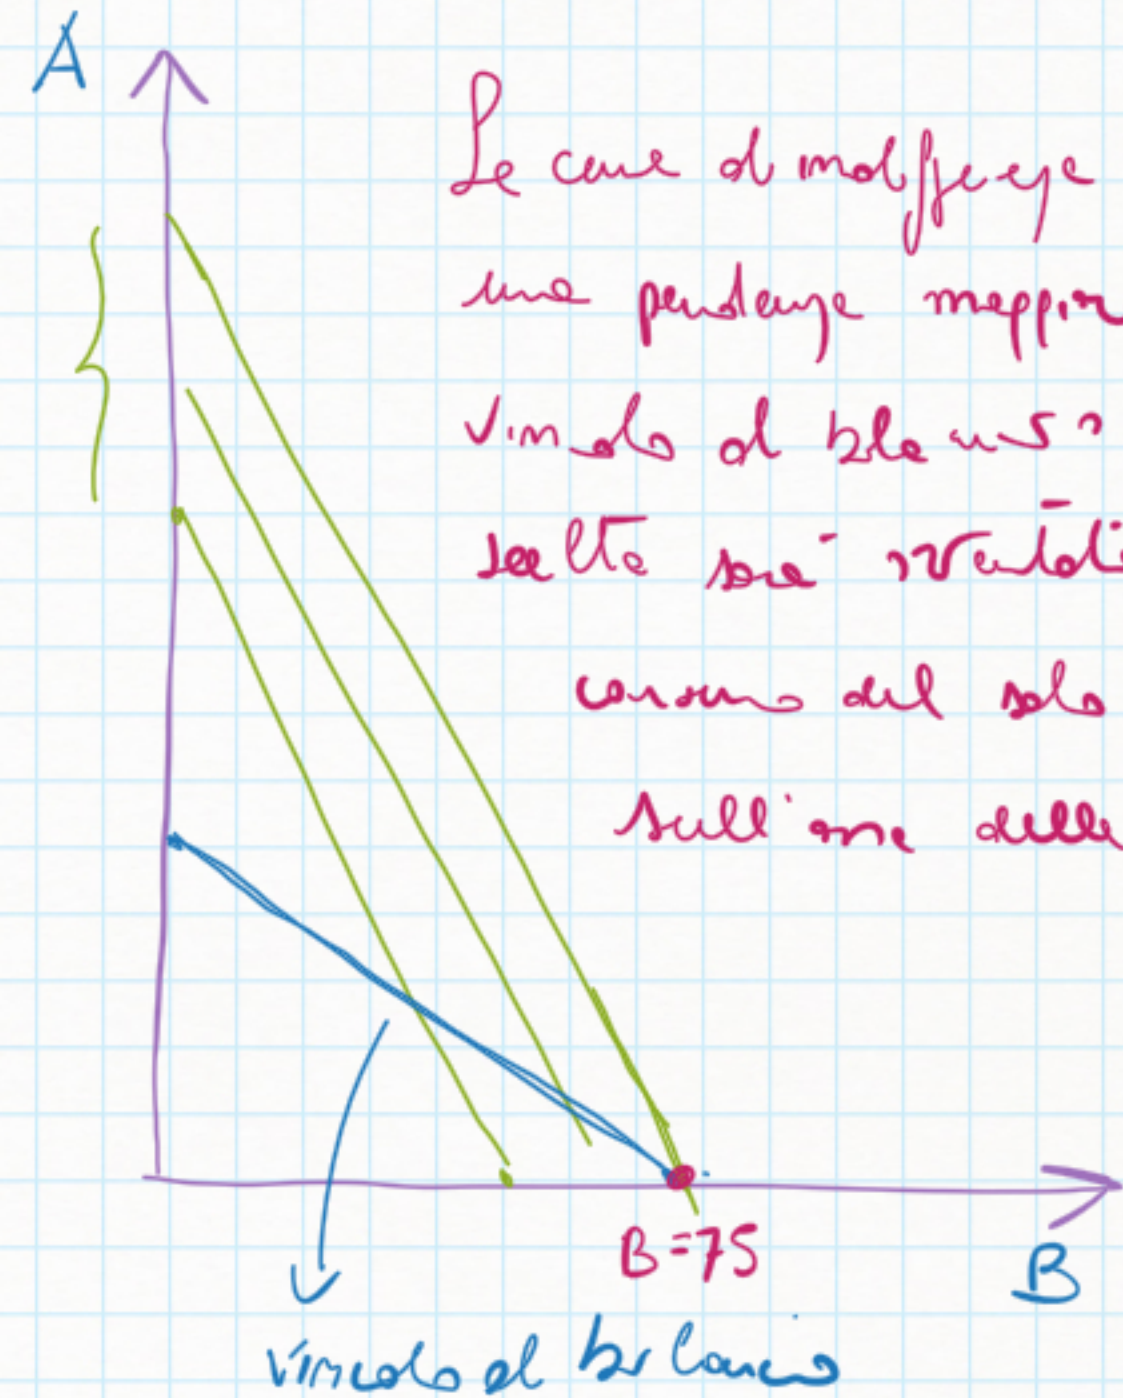 A
Le curve di indifferenza
una pendenza maggior
vincolo di bilancio
scelta sarà
consumo del solo
sull'asse delle
B=75
B
vincolo di bilancio